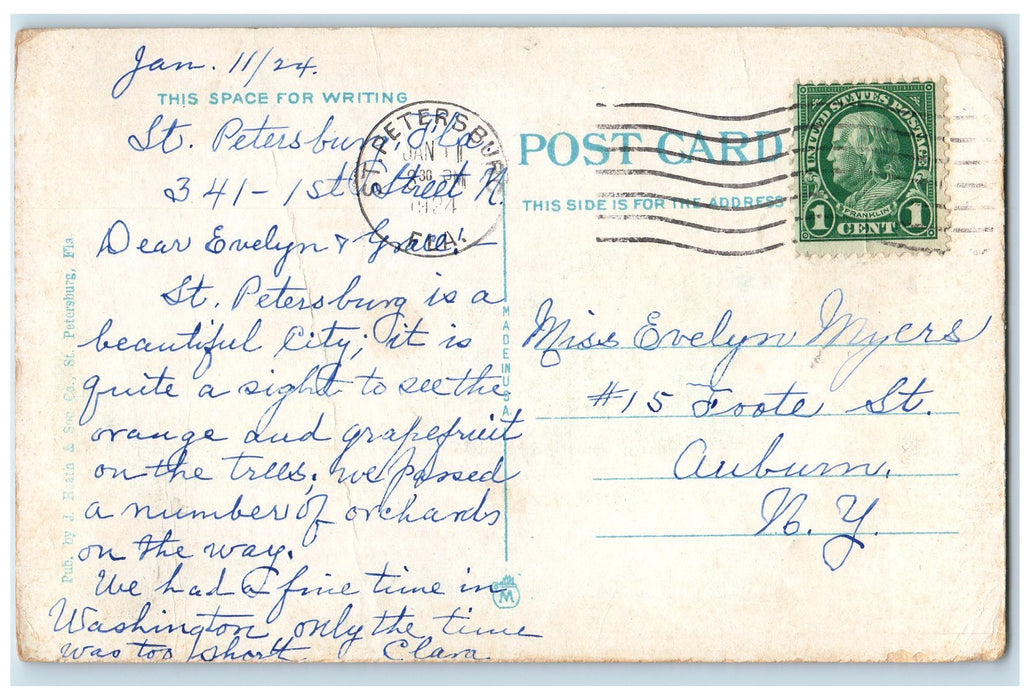 Jan. 11/24.
THIS SPACE FOR WRITING
St. Petersburg, Fla
341 - 1st Street N.
Dear Evelyn & Grace! -
St. Petersburg is a
beautiful City; it is
quite a sight to see the
orange and grapefruit
on the trees; we passed
a number of orchards
on the way.
We had a fine time in
Washington only the time
was too short. Clara
Pub. by J. & Son Co., St. Petersburg, Fla
ST. PETERSBURG
JAN 11
30 PM
1924
FLA.
MADE IN USA
M
POST CARD
THIS SIDE IS FOR THE ADDRESS
UNITED STATES POSTAGE
FRANKLIN
1 CENT 1
Miss Evelyn Myers
#15 Foote St.
Auburn,
N. Y.